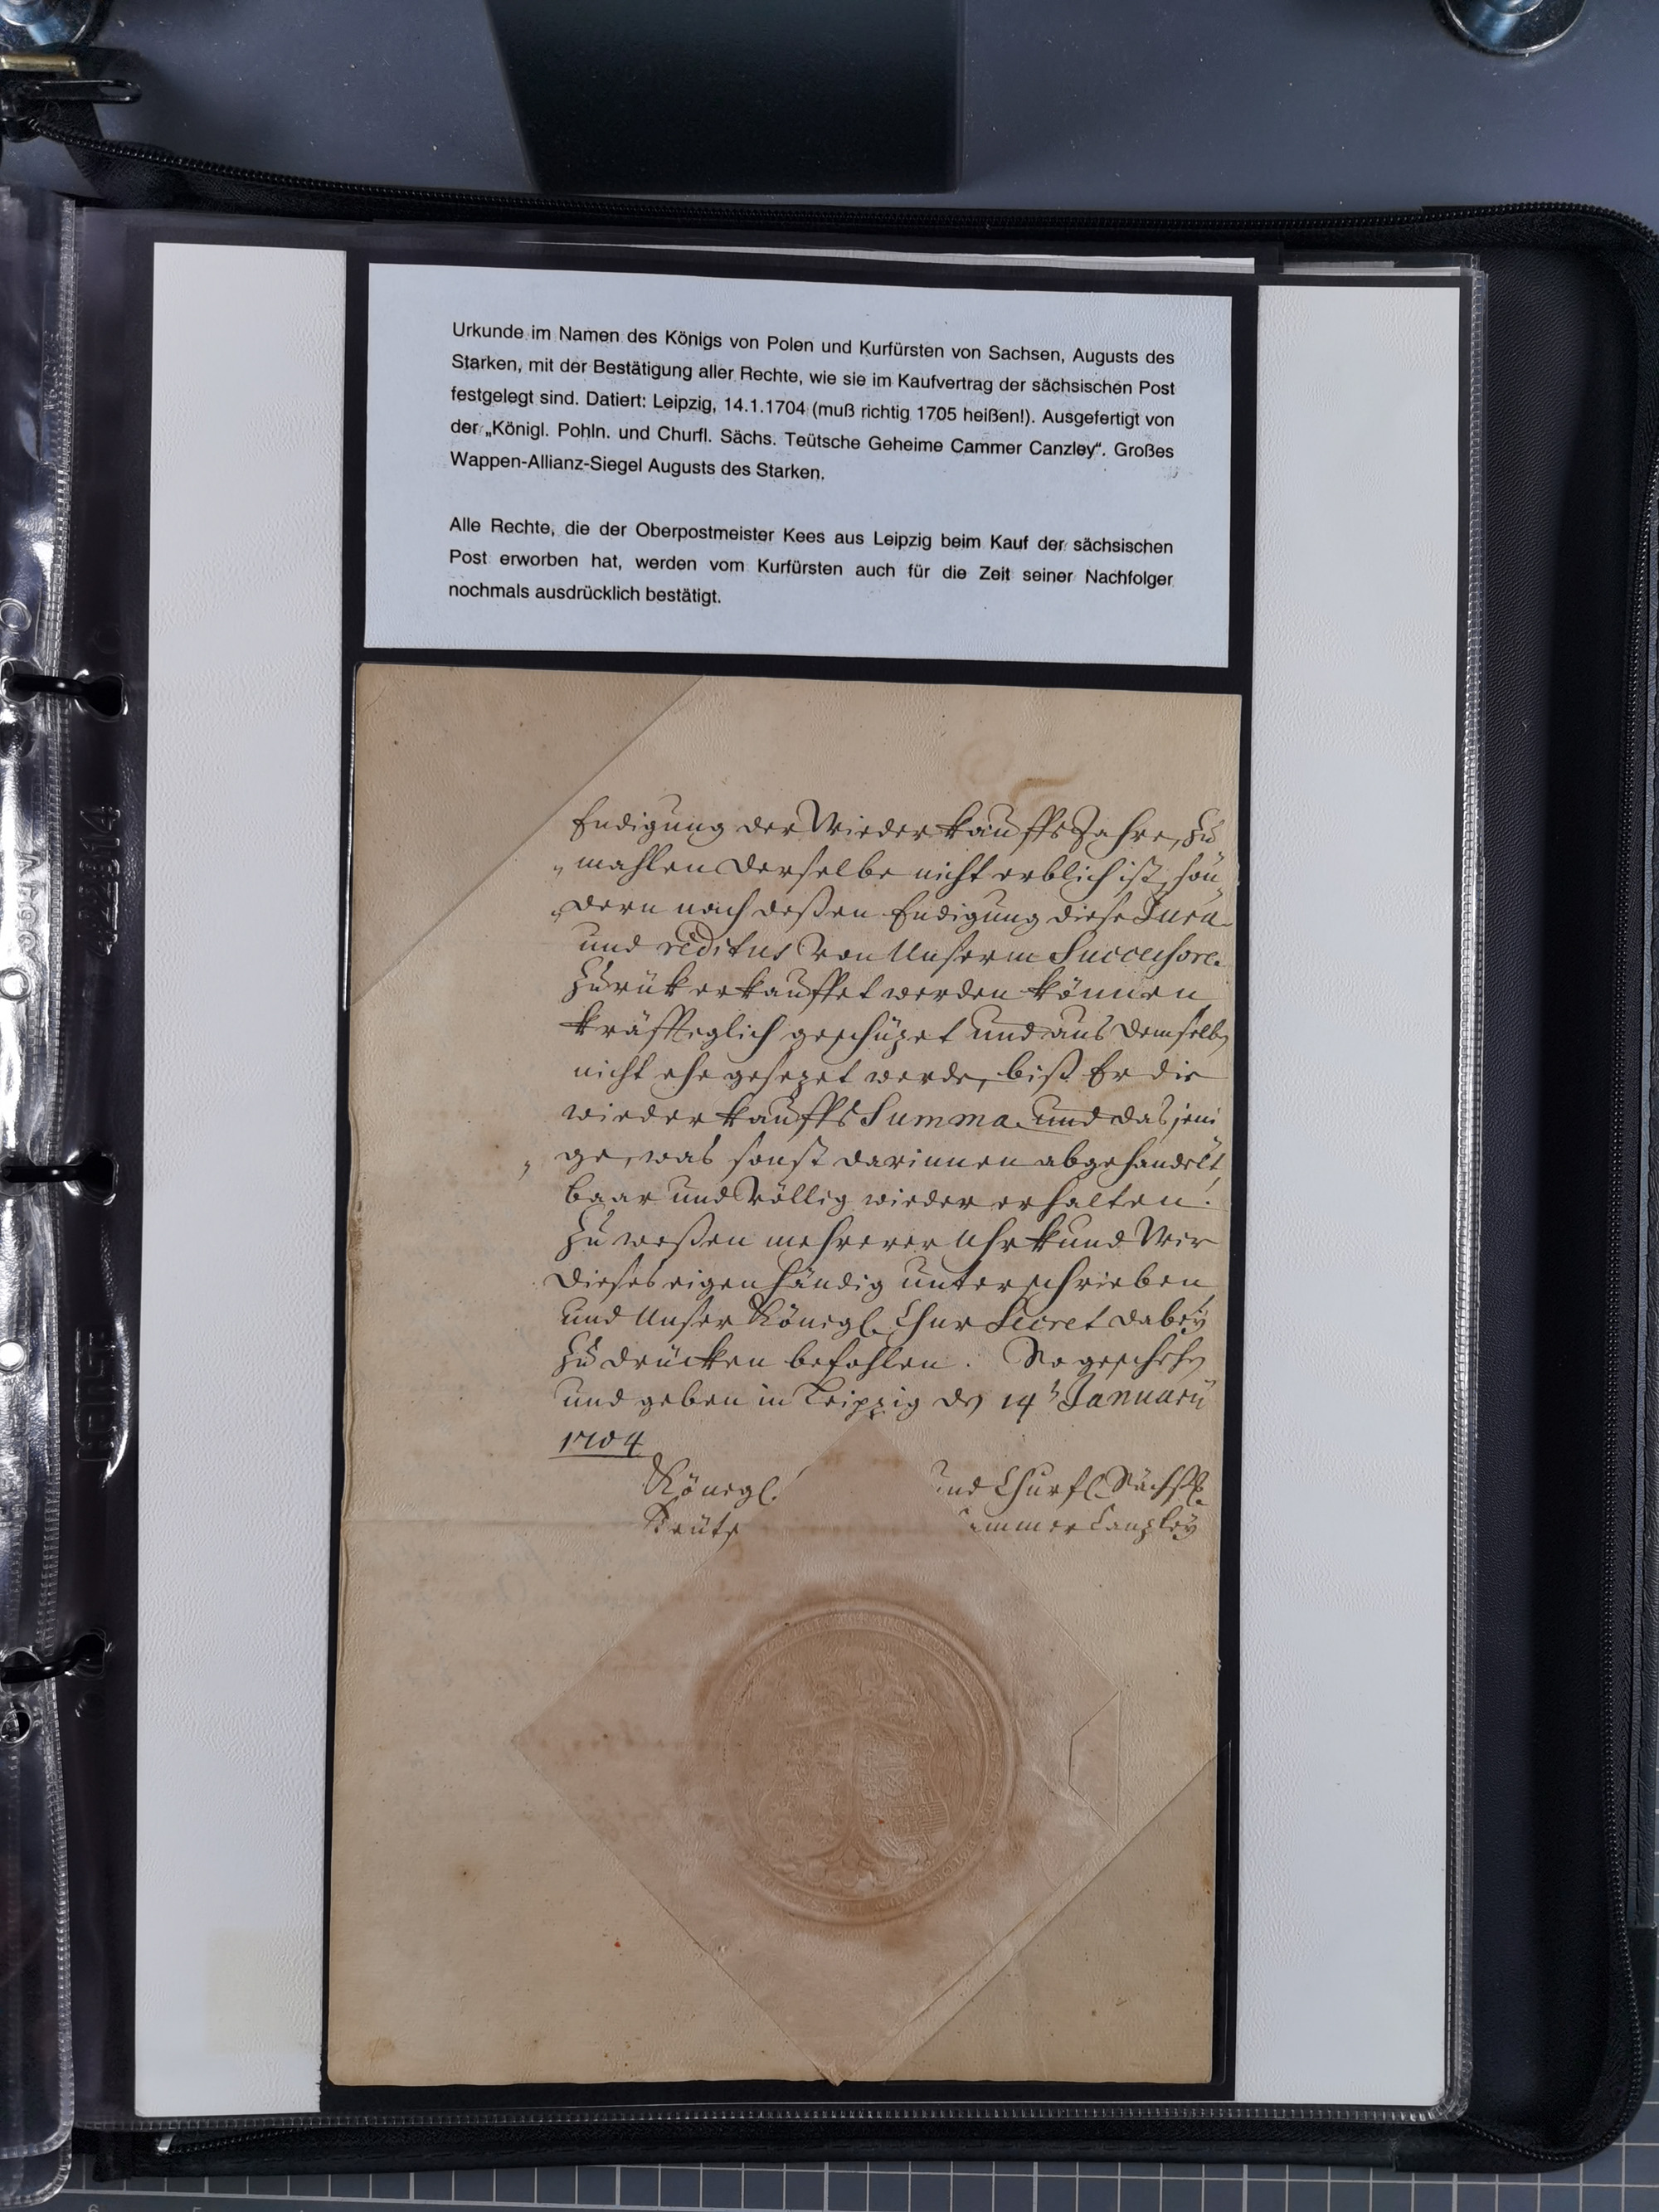 Urkunde im Namen des Königs von Polen und Kurfürsten von Sachsen, Augusts des
Starken, mit der Bestätigung aller Rechte, wie sie im Kaufvertrag der sächsischen Post
festgelegt sind. Datiert: Leipzig, 14.1.1704 (muß richtig 1705 heißen!). Ausgefertigt von
der „Königl. Pohln. und Churfl. Sächs. Teütsche Geheime Cammer Canzley“. Großes
Wappen-Allianz-Siegel Augusts des Starken.
Alle Rechte, die der Oberpostmeister Kees aus Leipzig beim Kauf der sächsischen
Post erworben hat, werden vom Kurfürsten auch für die Zeit seiner Nachfolger
nochmals ausdrücklich bestätigt.
Endigung der Wiederkauffs Jahre, zu
mahlen derselbe nicht erblich ist, son
dern nach deßen Endigung diese Jura
und reditus von Unserm Successore
zurük erkauffet werden können
kräfftiglich geschüzet und aus demselb
nicht ehe gesezet werde, biß Er die
wiederkauffs Summa und das jeni
ge, was sonst darinnen abgehandelt,
baar und völlig wieder erhalten.
Zu weßen mehrerer Uhrkund Wir
dieses eigenhändig unterschrieben
und Unser Königl. Chur Secret dabeÿ
zu drücken befohlen. So gescheh
und geben in Leipzig d 14 Januarii
1704
Königl. und Churfl. Sächß.
Teüts ammer Canzleÿ
HAUSR
422914